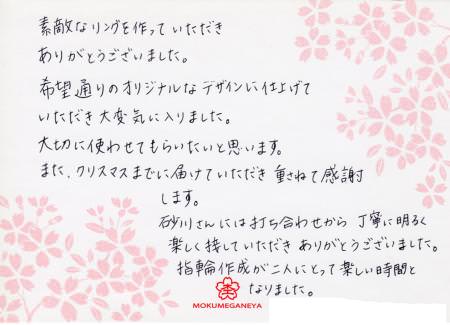 素敵なリングを作っていただき
ありがとうございました。
希望通りのオリジナルなデザインに仕上げて
いただき大変気に入りました。
大切に使わせてもらいたいと思います。
また、クリスマスまでに届けていただき重ねて感謝
します。
砂川さんには打ち合わせから丁寧に明るく
楽しく接していただきありがとうございました。
指輪作成が二人にとって楽しい時間と
なりました。
MOKUMEGANEYA